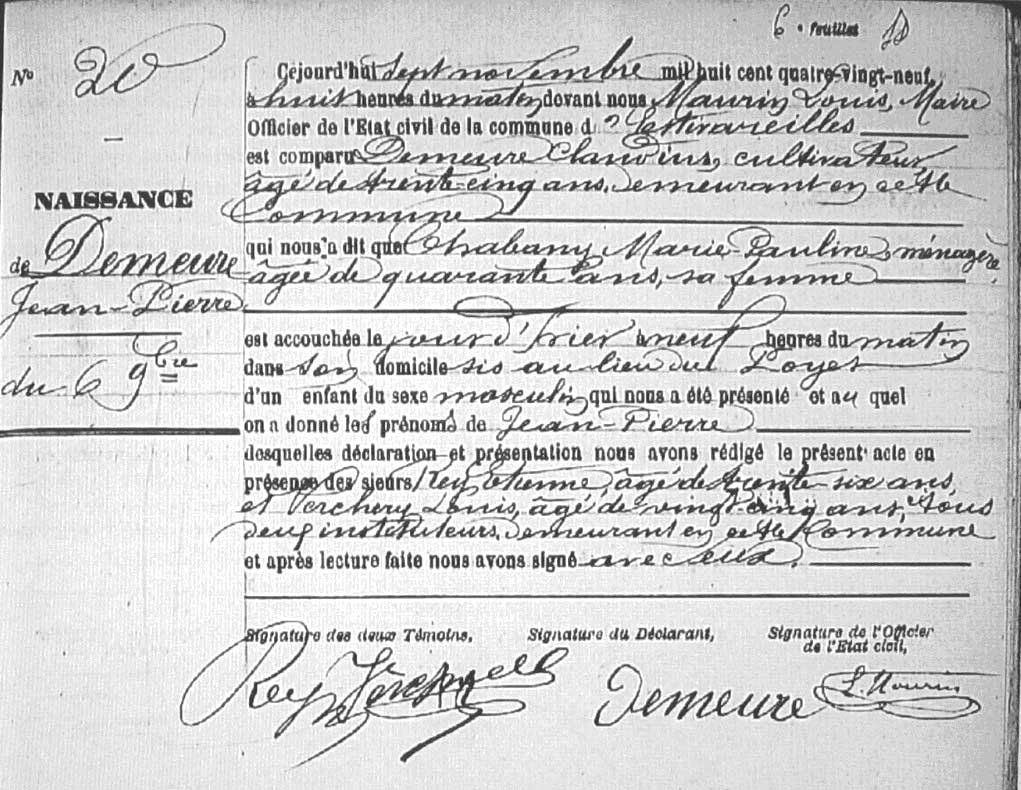 6e Feuillet
Nº 20
NAISSANCE
de Demeure
Jean-Pierre
du 6 9bre
Cejourd'hui sept novembre mil huit cent quatre-vingt-neuf,
à huit heures du matin devant nous Maurin Louis, Maire
Officier de l'Etat civil de la commune d'Estivareilles
est comparu Demeure Claudius, cultivateur,
âgé de trente-cinq ans, demeurant en cette
Commune
qui nous a dit que Chabany Marie-Pauline, ménagère,
âgée de quarante ans, sa femme
est accouchée le jour d'hier à neuf heures du matin
dans son domicile sis au lieu du Poyet
d'un enfant du sexe masculin qui nous a été présenté et au quel
on a donné les prénoms de Jean-Pierre
desquelles déclaration et présentation nous avons rédigé le présent acte en
présence des sieurs Rey Etienne, âgé de trente-six ans,
et Verchery Louis, âgé de vingt-cinq ans, tous
deux instituteurs, demeurant en cette Commune
et après lecture faite nous avons signé avec eux.
Signature des deux Témoins, Signature du Déclarant, Signature de l'Officier
de l'Etat civil,
Rey Demeure L. Maurin